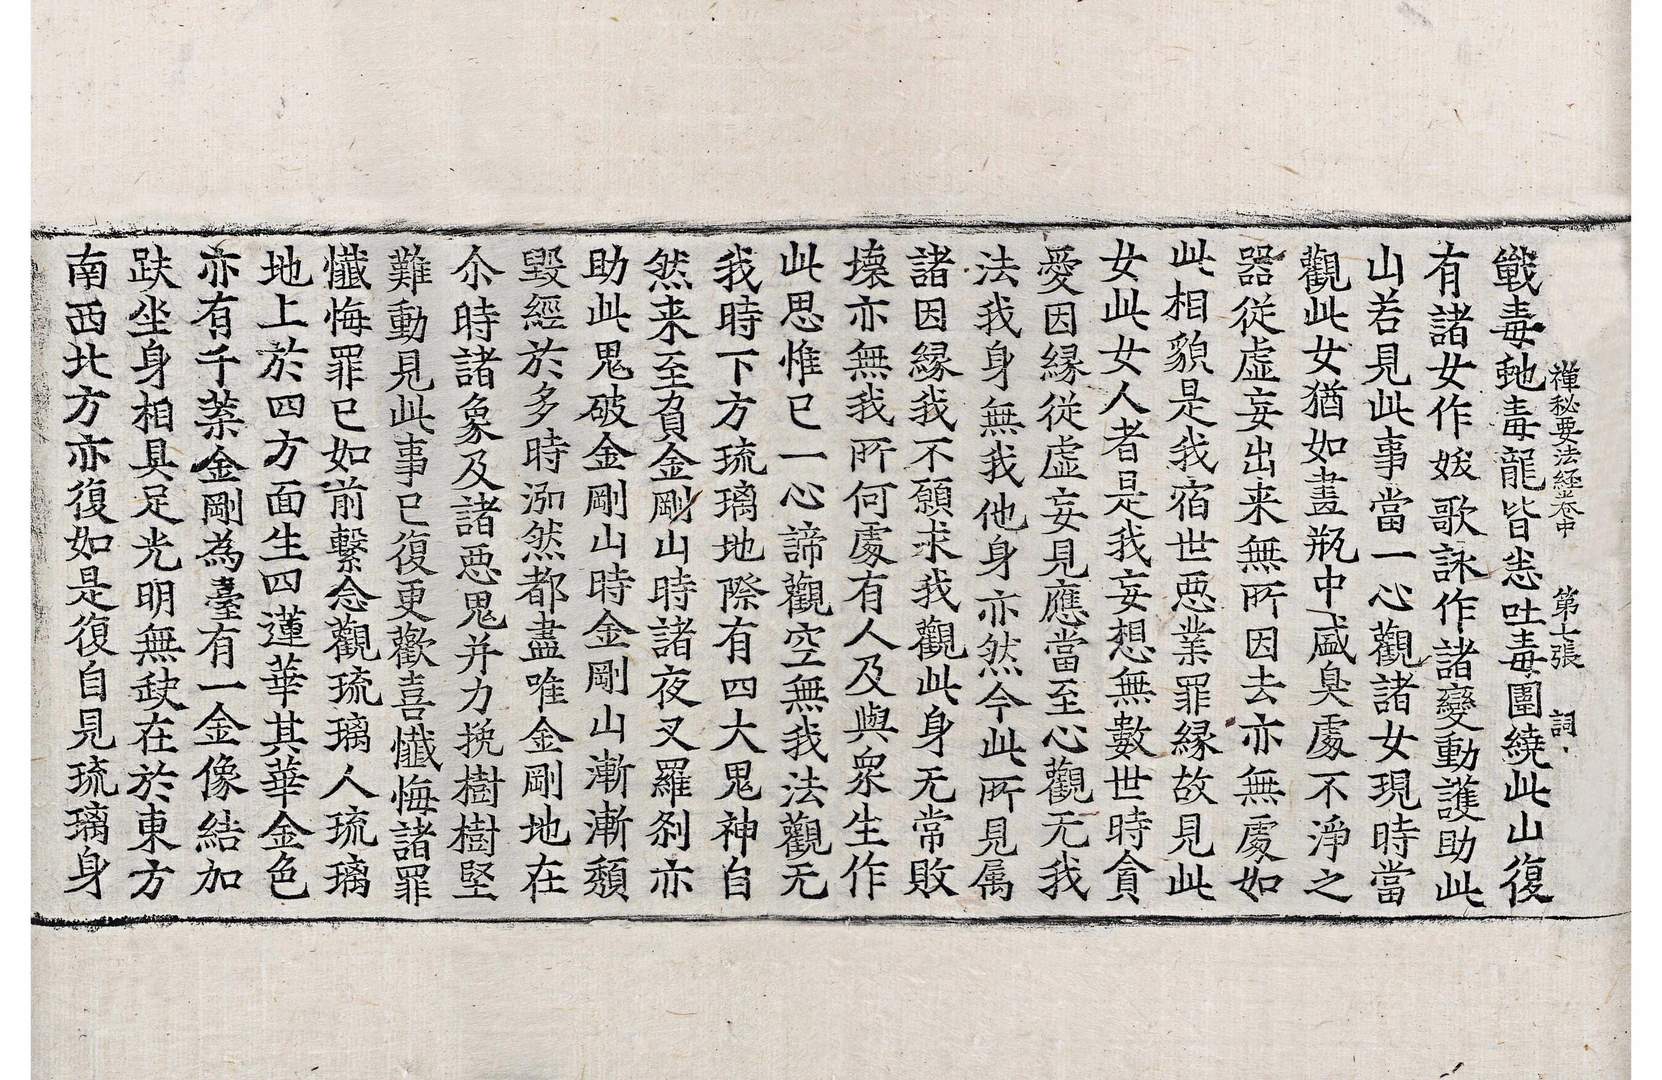 禪秘要法經卷中　第七張　詞
戰毒虵毒龍皆恙吐毒團繞此山復
有諸女作妓歌詠作諸變動護助此
山若見此事當一心觀諸女現時當
觀此女猶如畫瓶中盛臭處不淨之
器從虛妄出来無所因去亦無處如
此相貌是我宿世惡業罪緣故見此
女此女人者是我妄想無數世時貪
愛因緣從虛妄見應當至心觀无我
法我身無我他身亦然今此所見属
諸因緣我不願求我觀此身无常敗
壞亦無我所何處有人及與衆生作
此思惟已一心諦觀空無我法觀无
我時下方琉璃地際有四大鬼神自
然来至負金剛山時諸夜叉羅刹亦
助此鬼破金剛山時金剛山漸漸頹
毀經於多時泓然都盡唯金剛地在
尒時諸象及諸惡鬼并力挽樹樹堅
難動見此事已復更歡喜懺悔諸罪
懺悔罪已如前繫念觀琉璃人琉璃
地上於四方面生四蓮華其華金色
亦有千葉金剛為臺有一金像結加
趺坐身相具足光明無缺在於東方
南西北方亦復如是復自見琉璃身